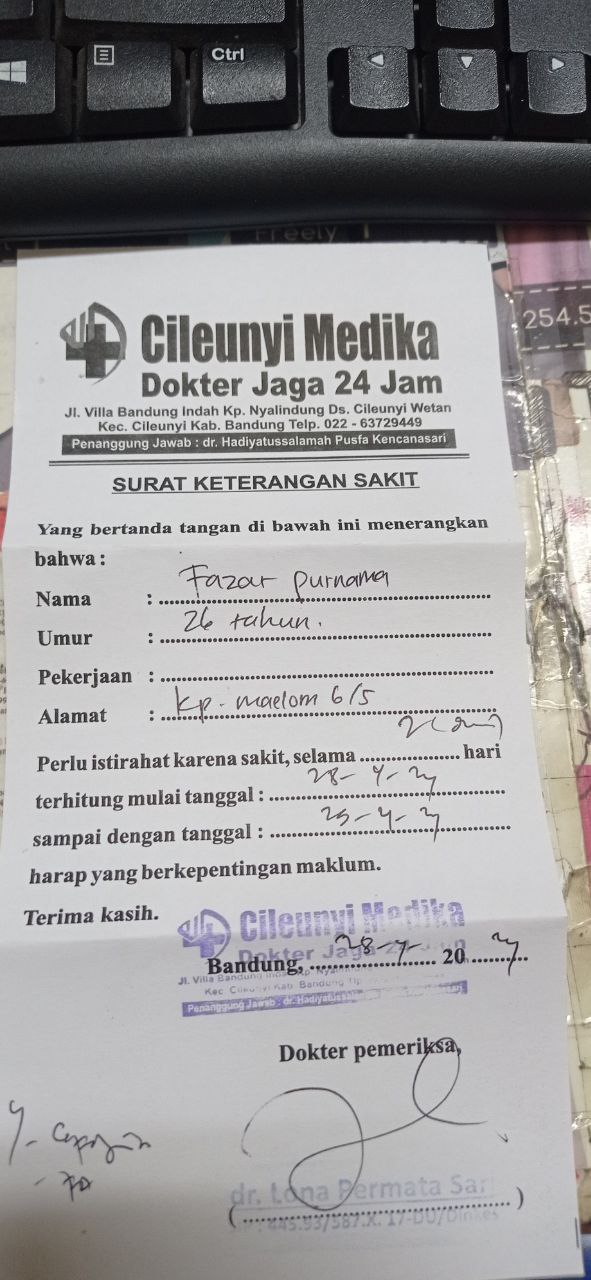 Ctrl
Freely
254.5
Cileunyi Medika
Dokter Jaga 24 Jam
Jl. Villa Bandung Indah Kp. Nyalindung Ds. Cileunyi Wetan
Kec. Cileunyi Kab. Bandung Telp. 022 - 63729449
Penanggung Jawab : dr. Hadiyatussalamah Pusfa Kencanasari
SURAT KETERANGAN SAKIT
Yang bertanda tangan di bawah ini menerangkan
bahwa :
Nama : Fazar purnama
Umur : 26 tahun.
Pekerjaan :
Alamat : kp. maelom 6/5
Perlu istirahat karena sakit, selama 2 hari
terhitung mulai tanggal : 28-4-
sampai dengan tanggal :
harap yang berkepentingan maklum.
Terima kasih.
Cileunyi Medika
Dokter Jaga
Bandung, 28-4- 20
Jl. Villa Bandung
Kec Cileunyi Kab Bandung
Penanggung Jawab : dr.
Dokter pemeriksa,
dr. Lona Permata Sari